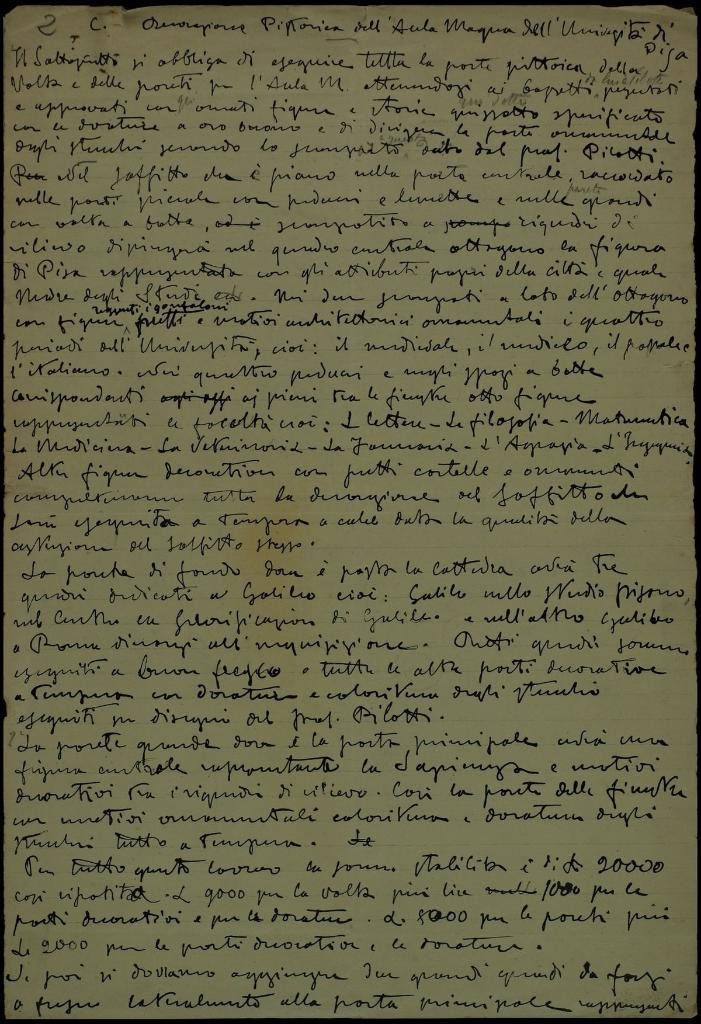 2 C. Decorazione Pittorica dell'Aula Magna dell'Università di Pisa
Il Sottoscritto si obbliga di eseguire tutta la parte pittorica della
Volta e delle pareti per l'Aula M. attenendosi ai bozzetti presentati
e approvati con ornati figure e storie specificato
con le dorature a oro buono e di dirigere la parte ornamentale
degli stucchi secondo lo scompartito dato dal prof. Pilotti.
Nel soffitto che è piano nella parte centrale, raccordato
nelle parti piccole con peducci e lunette e nelle grandi
con volta a botte, scompartito a riquadri di
rilievo dipingerà nel quadro centrale ottagono la figura
di Pisa rappresentata con gli attributi propri della città e quale
Madre degli Studi. Nei due scomparti a lato dell'ottagono
con figure, putti e motivi architettonici ornamentali i quattro
periodi dell'Università, cioè: il medioevale, il mediceo, il
l'italiano. Nei quattro peducci e negli spazi a botte
corrispondenti ai piani tra le finestre otto figure
rappresentanti le facoltà cioè: Le lettere - La filosofia - Matematica
La Medicina - La Veterinaria - La Farmacia - L'Agraria - L'Ingegneria
Altre figure decorative con putti cartelle e ornamenti
completeranno tutta la decorazione del Soffitto che
sarà eseguita a tempera a calce data la qualità della
costruzione del soffitto stesso.
La parete di fondo dove è posta la cattedra avrà tre
quadri dedicati a Galileo cioè: Galileo nello studio pisano,
nel centro la Glorificazione di Galileo e nell'altro Galileo
a Roma dinanzi all'inquisizione. Tutti quadri saranno
eseguiti a buon fresco e tutte le altre parti decorative
a tempera con dorature e coloritura degli stucchi
eseguiti su disegni del Prof. Pilotti.
La parete grande dove è la porta principale avrà una
figura centrale rappresentante la Sapienza e motivi
decorativi tra i riquadri di rilievo. Così la parete delle finestre
con motivi ornamentali coloritura e doratura degli
stucchi tutto a tempera. Le
Per tutto questo lavoro la somma stabilita è di £. 20000
così ripartita. £ 9000 per la volta più lire 1000 per le
parti decorative e per le dorature. £. 8000 per le pareti più
£. 2000 per le parti decorative e le dorature.
Se poi si dovranno aggiungere due grandi quadri da farsi
a fresco lateralmente alla porta principale rappresentanti